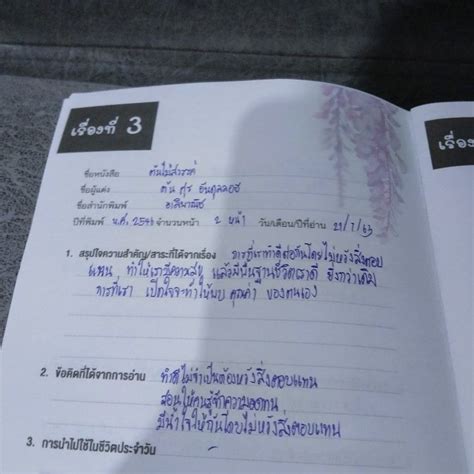 เรื่องที่ 3
เรื่องที่
ชื่อหนังสือ ต้นไม้สวรรค์
ชื่อผู้แต่ง
ชื่อสำนักพิมพ์
ปีที่พิมพ์ พ.ศ. 2546 จำนวนหน้า 2 หน้า วัน/เดือน/ปีที่อ่าน 21/7/63
1. สรุปใจความสำคัญ/สาระที่ได้จากเรื่อง การที่เราทำดีต่อกันโดยไม่หวังสิ่งตอบ
แทน ทำให้เรารู้ความสุข แล้วมีพื้นฐานชีวิตเราดี ยิ่งกว่าเดิม
การที่เรา เปิดใจจะทำให้พบ คุณค่า ของตนเอง
2. ข้อคิดที่ได้จากการอ่าน ทำดีไม่จำเป็นต้องหวังสิ่งตอบแทน
สอนให้คนรู้จักความอดทน
มีน้ำใจให้กันโดยไม่หวังสิ่งตอบแทน
3. การนำไปใช้ในชีวิตประจำวัน